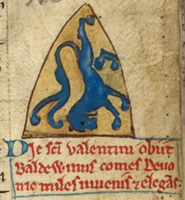 Die sc̄i valentini obiit
Baldewinus comes Deuo
nie miles iuuenis ⁊ elegās.